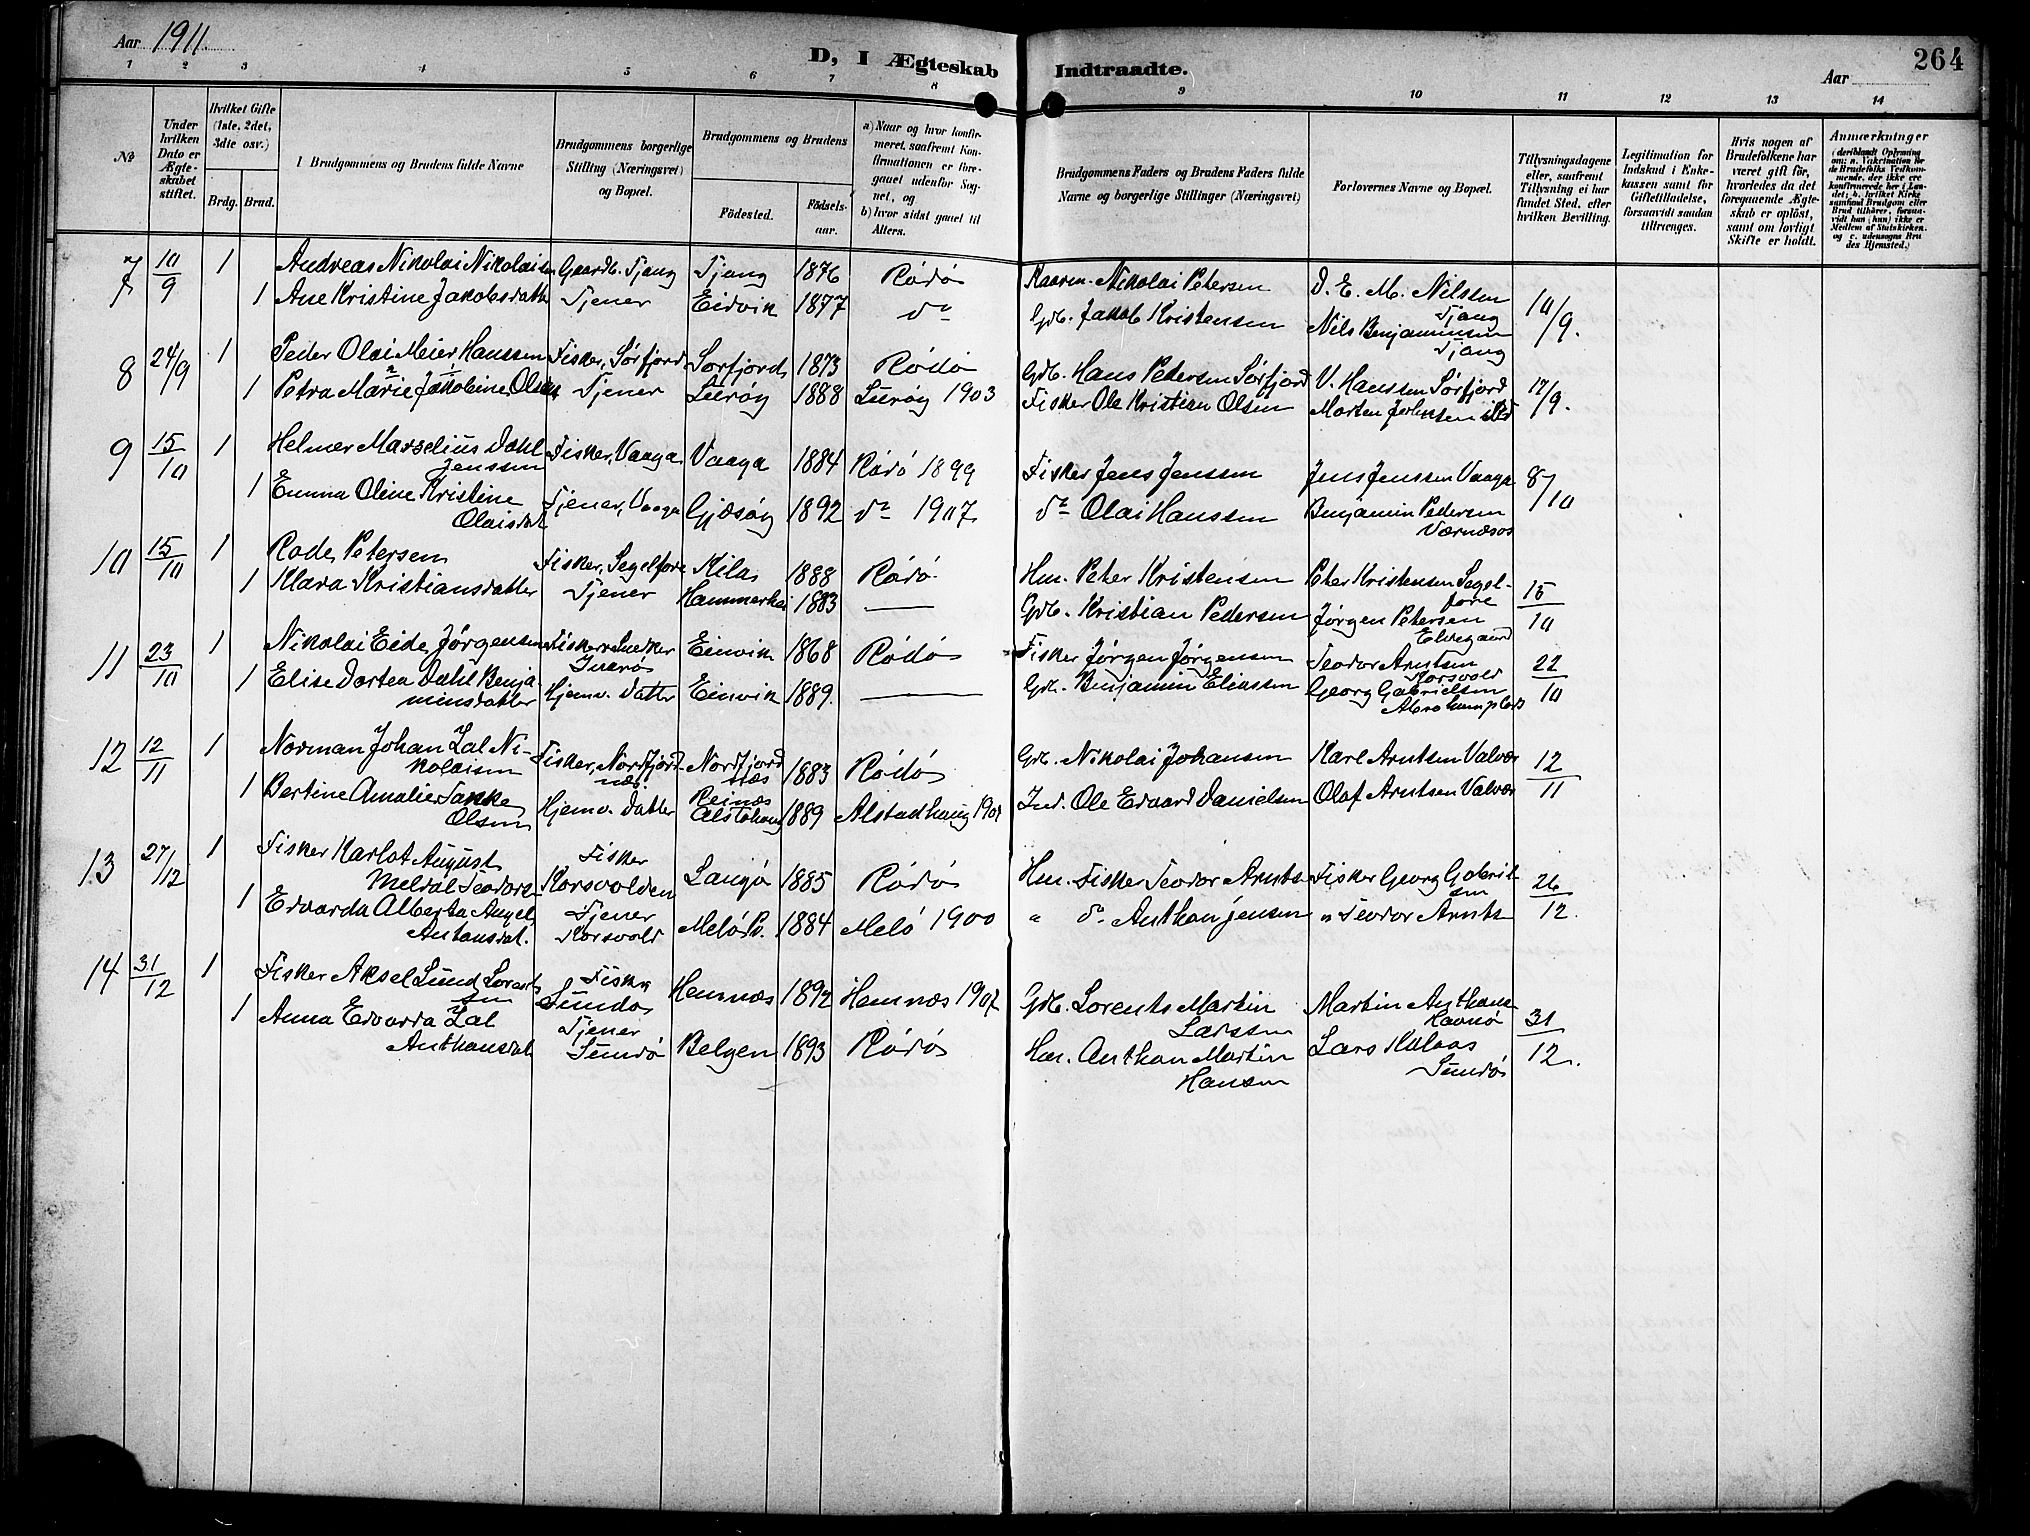 Aar 1911.
D, I Ægteskab Indtraadte.
Aar
264
1 2 3 4 5 6 7 8 9 10 11 12 13 14
No
Under hvilken Dato er Ægteskabet stiftet.
Hvilket Gifte (1ste, 2det, 3die osv.)
Brdg. Brud.
Brudgommens og Brudens fulde Navne
Brudgommens borgerlige Stilling (Næringsvei) og Bopæl.
Brudgommens og Brudens
Fødested.
Fødselsaar.
a) Naar og hvor konfirmeret, saafremt Konfirmationen er foregaaet udenfor Sognet, og
b) hvor sidst gaaet til Alters.
Brudgommens Faders og Brudens Faders fulde Navne og borgerlige Stillinger (Næringsvei)
Forlovernes Navne og Bopæl.
Tillysningsdagene eller, saafremt Tillysning ei har fundet Sted, efter hvilken Bevilling.
Legitimation for Indskud i Enkekassen samt for Giftetilladelse, forsaavidt saadan tiltrænges.
Hvis nogen af Brudefolkene har været gift før, hvorledes da det foregaaende Ægteskab er opløst, samt om lovligt Skifte er holdt.
Anmærkninger
7 10/9 1 Andreas Nikolai Nikolaisen Gaardb. Tjang Tjang 1876 Rødø Kaarm. Nikolai Petersen D. E. M. Nilssen Tjang 10/9.
1 Ane Kristine Jakobsdatter Tjener Eidvik 1877 do Gdb. Jakob Kristensen Nils Benjaminsen Tjang
8 24/9 1 Peder Olai Meier Hanssen Fisker, Sørfjord Sørfjord 1873 Rødø Gdb. Hans Pedersen Sørfjord V. Hanssen Sørfjord 17/9.
1 Petra Marie Jakobine Olsen Tjener Lurøy 1888 Lurøy 1903 Fisker Ole Kristian Olsen Morten Johnsen
9 15/10 1 Helmer Marselius Dahl Jenssen Fisker, Vaaga Vaaga 1884 Rødø 1899 Fisker Jens Jenssen Jens Jenssen Vaaga 8/10
1 Emma Oline Kristine Olaisdat Tjener, Vaaga Gjæsøy 1892 do 1907. do Olai Hanssen Benjamin Pedersen Værnæsos
10 15/10 1 Rode Petersen Fisker, Segelfore Kila 1888 Rødø Hm. Peter Kristensen Peter Kristensen Segelfore 15/10
1 Klara Kristiansdatter Tjener 1883 — Gdb. Kristian Pedersen Jørgen Petersen Elvegaard
11 23/10 1 Nikolai Eide Jørgensen Einvik 1868 Rødø Fisker Jørgen Jørgensen Teodor Arntsen Korsvold 22/10
1 Elise Dortea Dahl Benjaminsdatter Hjemv. datter Einvik 1889. — Gdb. Benjamin Eliassen Georg Gabrielsen
12 12/11 1 Norman Johan Zal Nikolaisen Fisker, Nordfjordnæs Nordfjordnæs 1883 Rødø Gdb. Nikolai Johansen Karl Arntsen Valvær 12/11
1 Bertine Amalie Olsen Hjemv. datter Reinæs Alstahaug 1889 Alstadhaug Ind. Ole Edvard Danielsen Olaf Arntsen Valvær
13 27/12 1 Fisker Karlot August Meldal Teodors. Fisker Korsvolden Langø 1885 Rødø Hm. Fisker Teodor Arnts. Fisker Georg Gabrielsen 26/12.
1 Edvarda Alberta Angel Antonsdat. Tjener Korsvold Melø 1884 Melø 1900 " do Anthon Jensen " Teodor Arnts.
14 31/12 1 Fisker Aksel Lund Lorentsen Fisker Sundø Hemnæs 1892 Hemnæs 1907 Gdb. Lorents Martin Larssen Martin Anthons Havnø 31/12.
1 Anna Edvarda Zal Anthonsdat Tjener Sundø Bolgen 1893 Rødø Hm. Anthon Martin Hansen Lars Sundø